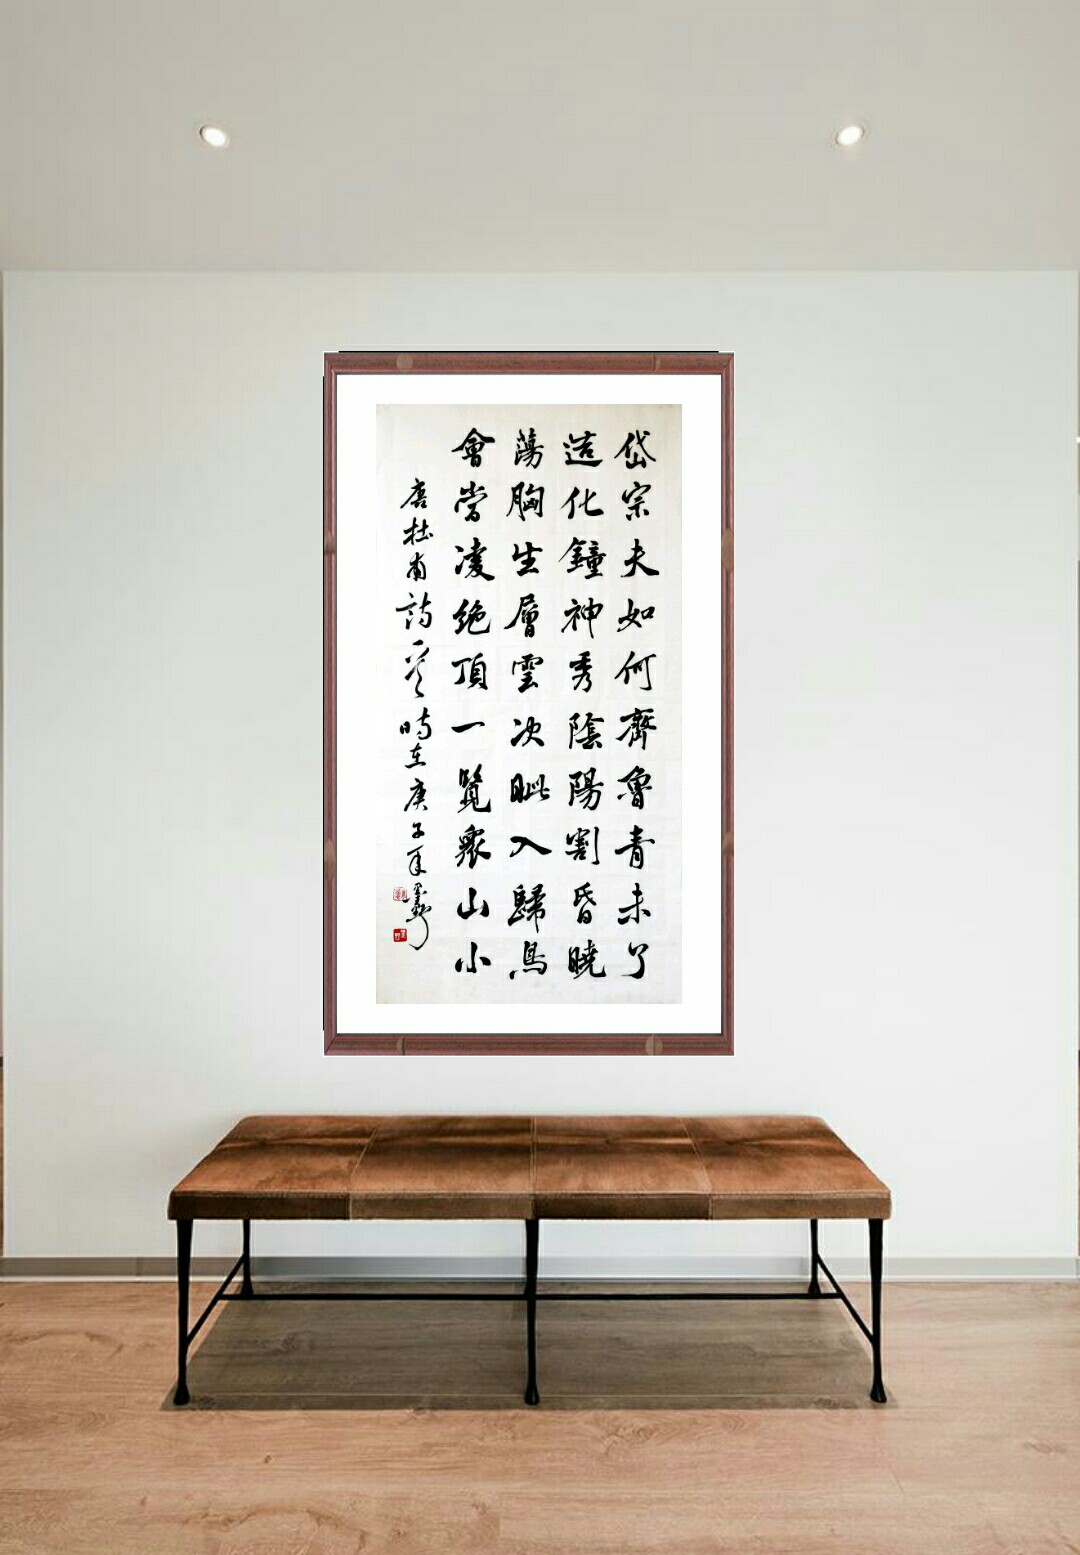 岱宗夫如何齊魯青未了
造化鐘神秀陰陽割昏曉
蕩胸生層雲決眦入歸鳥
會當凌絕頂一覽衆山小
唐杜甫詩一首時在庚子年